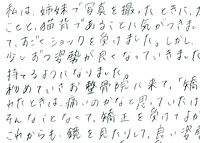 私は、姉妹で写真を撮ったときに、た
ことと、猫背であることに気がつきまし
て、すごくショックを受けました。しかし、
少しずつ姿勢が良くなっていきました
持てるようになりました。
初めていさお整骨院に来て、「矯
れたときは、痛いのかなと思っていたけ
そんなことなくて、矯正を受けてよか
これからも、鏡を見たりして、良い姿勢